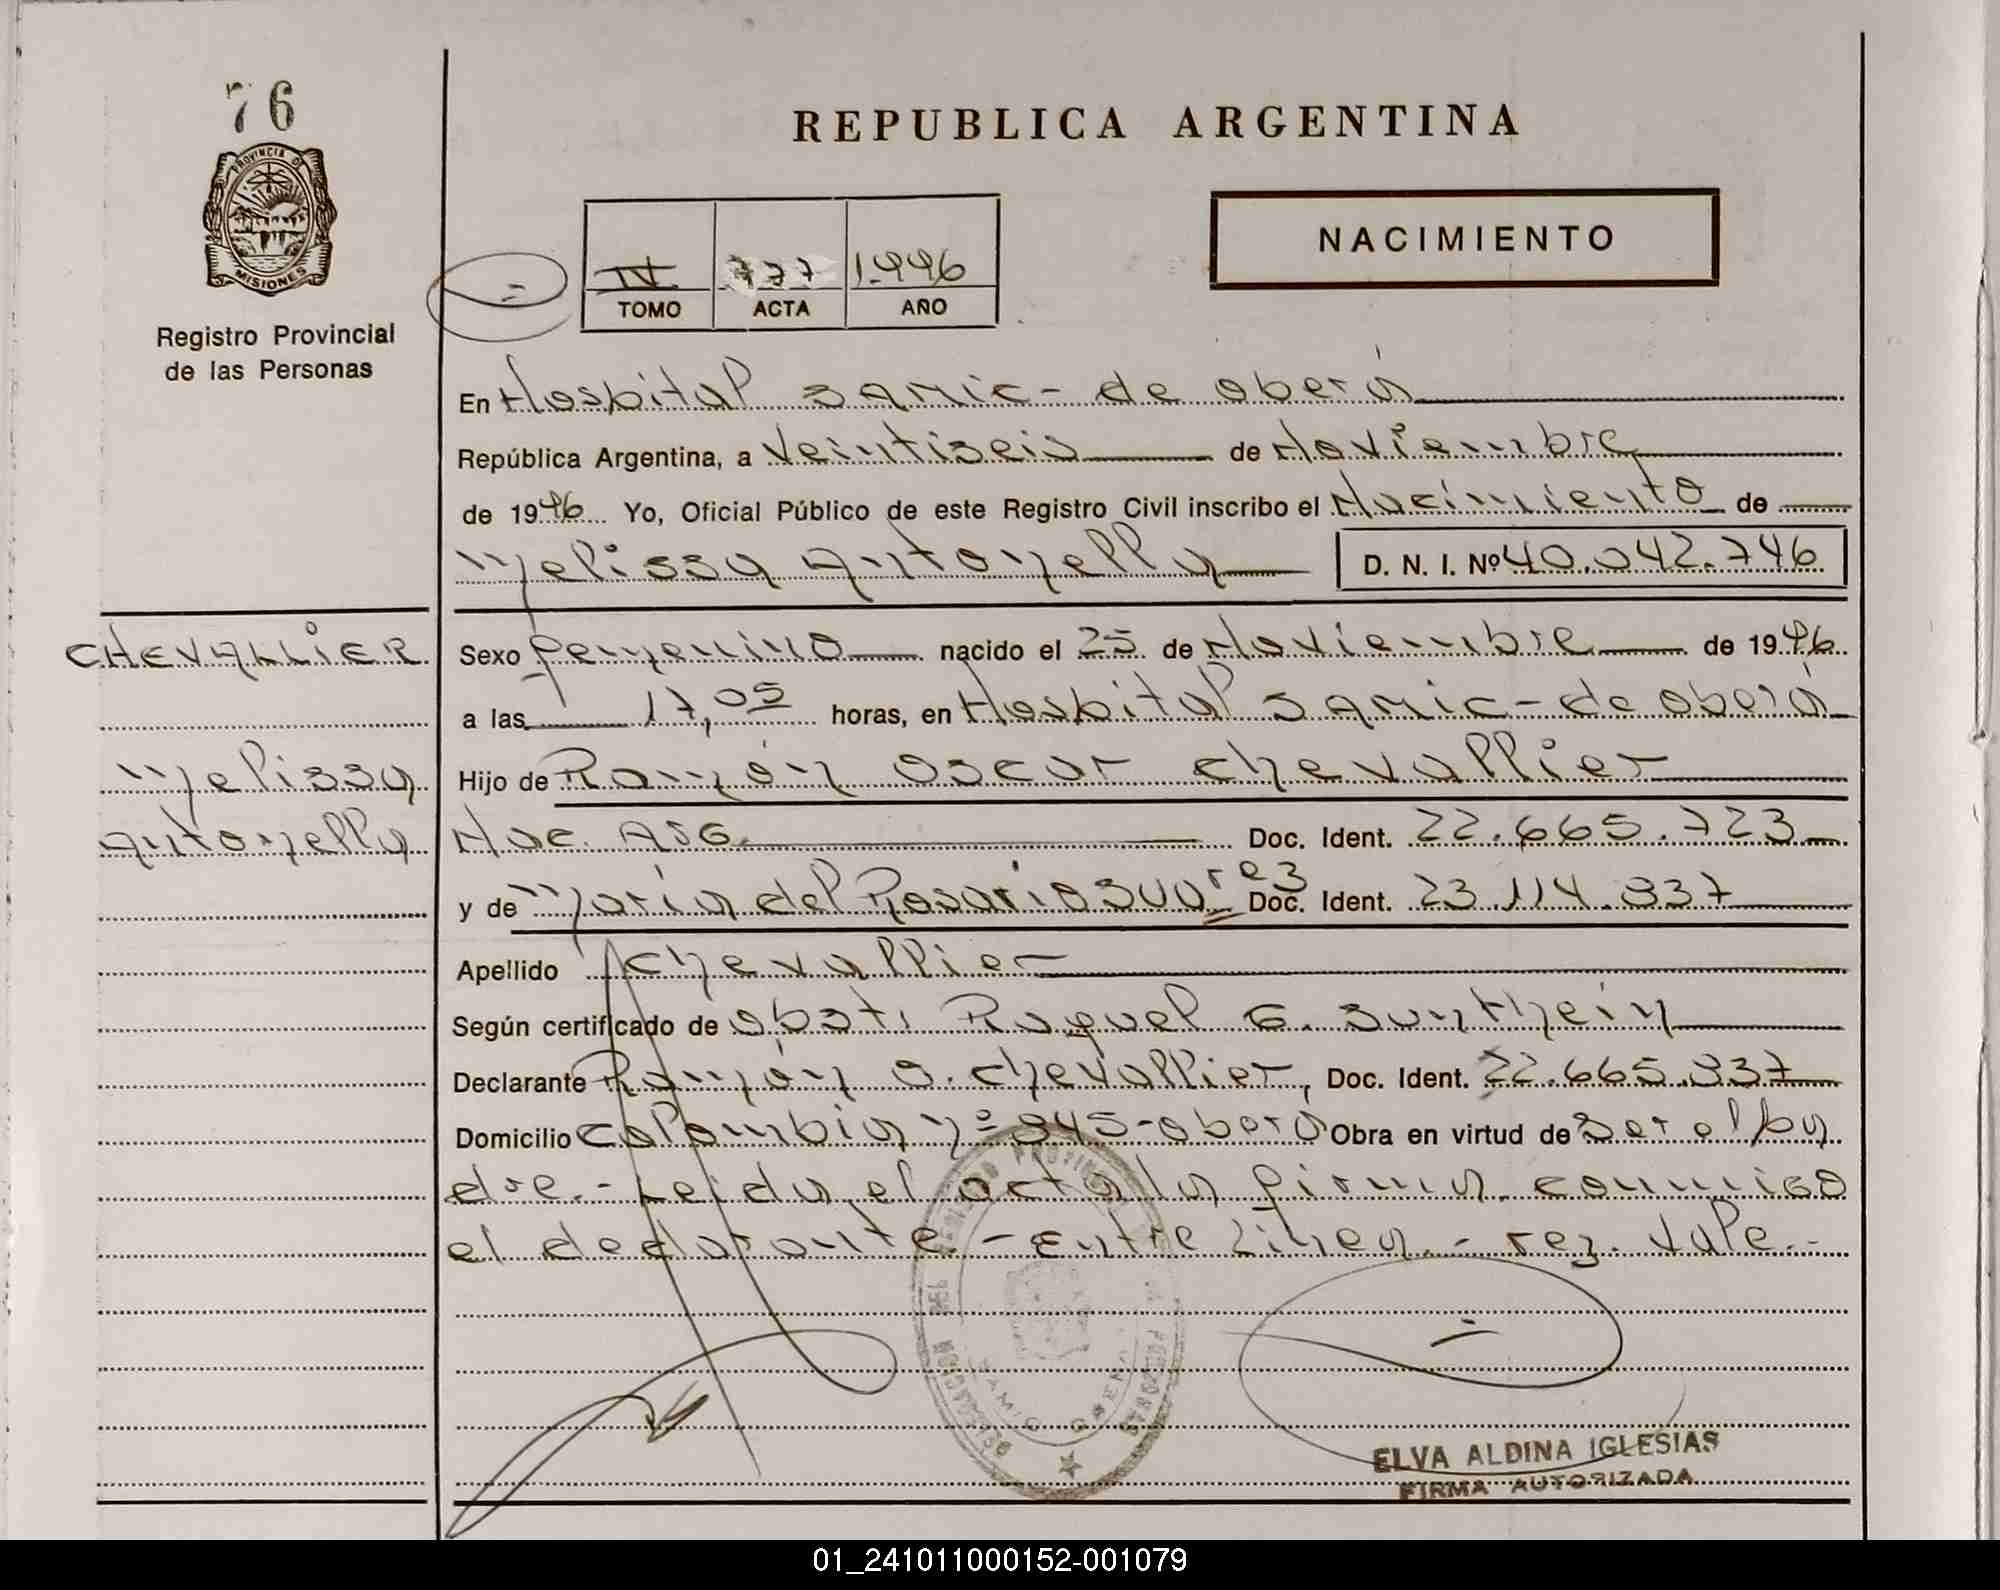 76
PROVINCIA DE
MISIONES
Registro Provincial
de las Personas
REPUBLICA ARGENTINA
NACIMIENTO
IV 777 1.996
TOMO ACTA AÑO
En Hospital SAMIC - de oberá
República Argentina, a Veintiseis de Noviembre
de 1996 Yo, Oficial Público de este Registro Civil inscribo el Nacimiento de
Melissa Antonella D. N. I. Nº 40.042.746
CHEVALLIER
Melissa
Antonella
Sexo femenino nacido el 25 de Noviembre de 1996
a las 17,05 horas, en Hospital SAMIC - de oberá
Hijo de Ramón oscar chevallier
Nac. ARG. Doc. Ident. 22.665.723
y de María del Rosario Suarez Doc. Ident. 23.114.837
Apellido chevallier
Según certificado de obst. Raquel G. Sunthein
Declarante Ramón o. chevallier, Doc. Ident. 22.665.837
Domicilio colombia nº 845 - oberá Obra en virtud de Ser el pa
dre. - Leida el acta la firma conmigo
el declarante. - Entre Linea. - rez. Vale. -
DELEGACION DEL REGISTRO PROVINCIAL DE LAS PERSONAS
ELVA ALDINA IGLESIAS
FIRMA AUTORIZADA
01_241011000152-001079